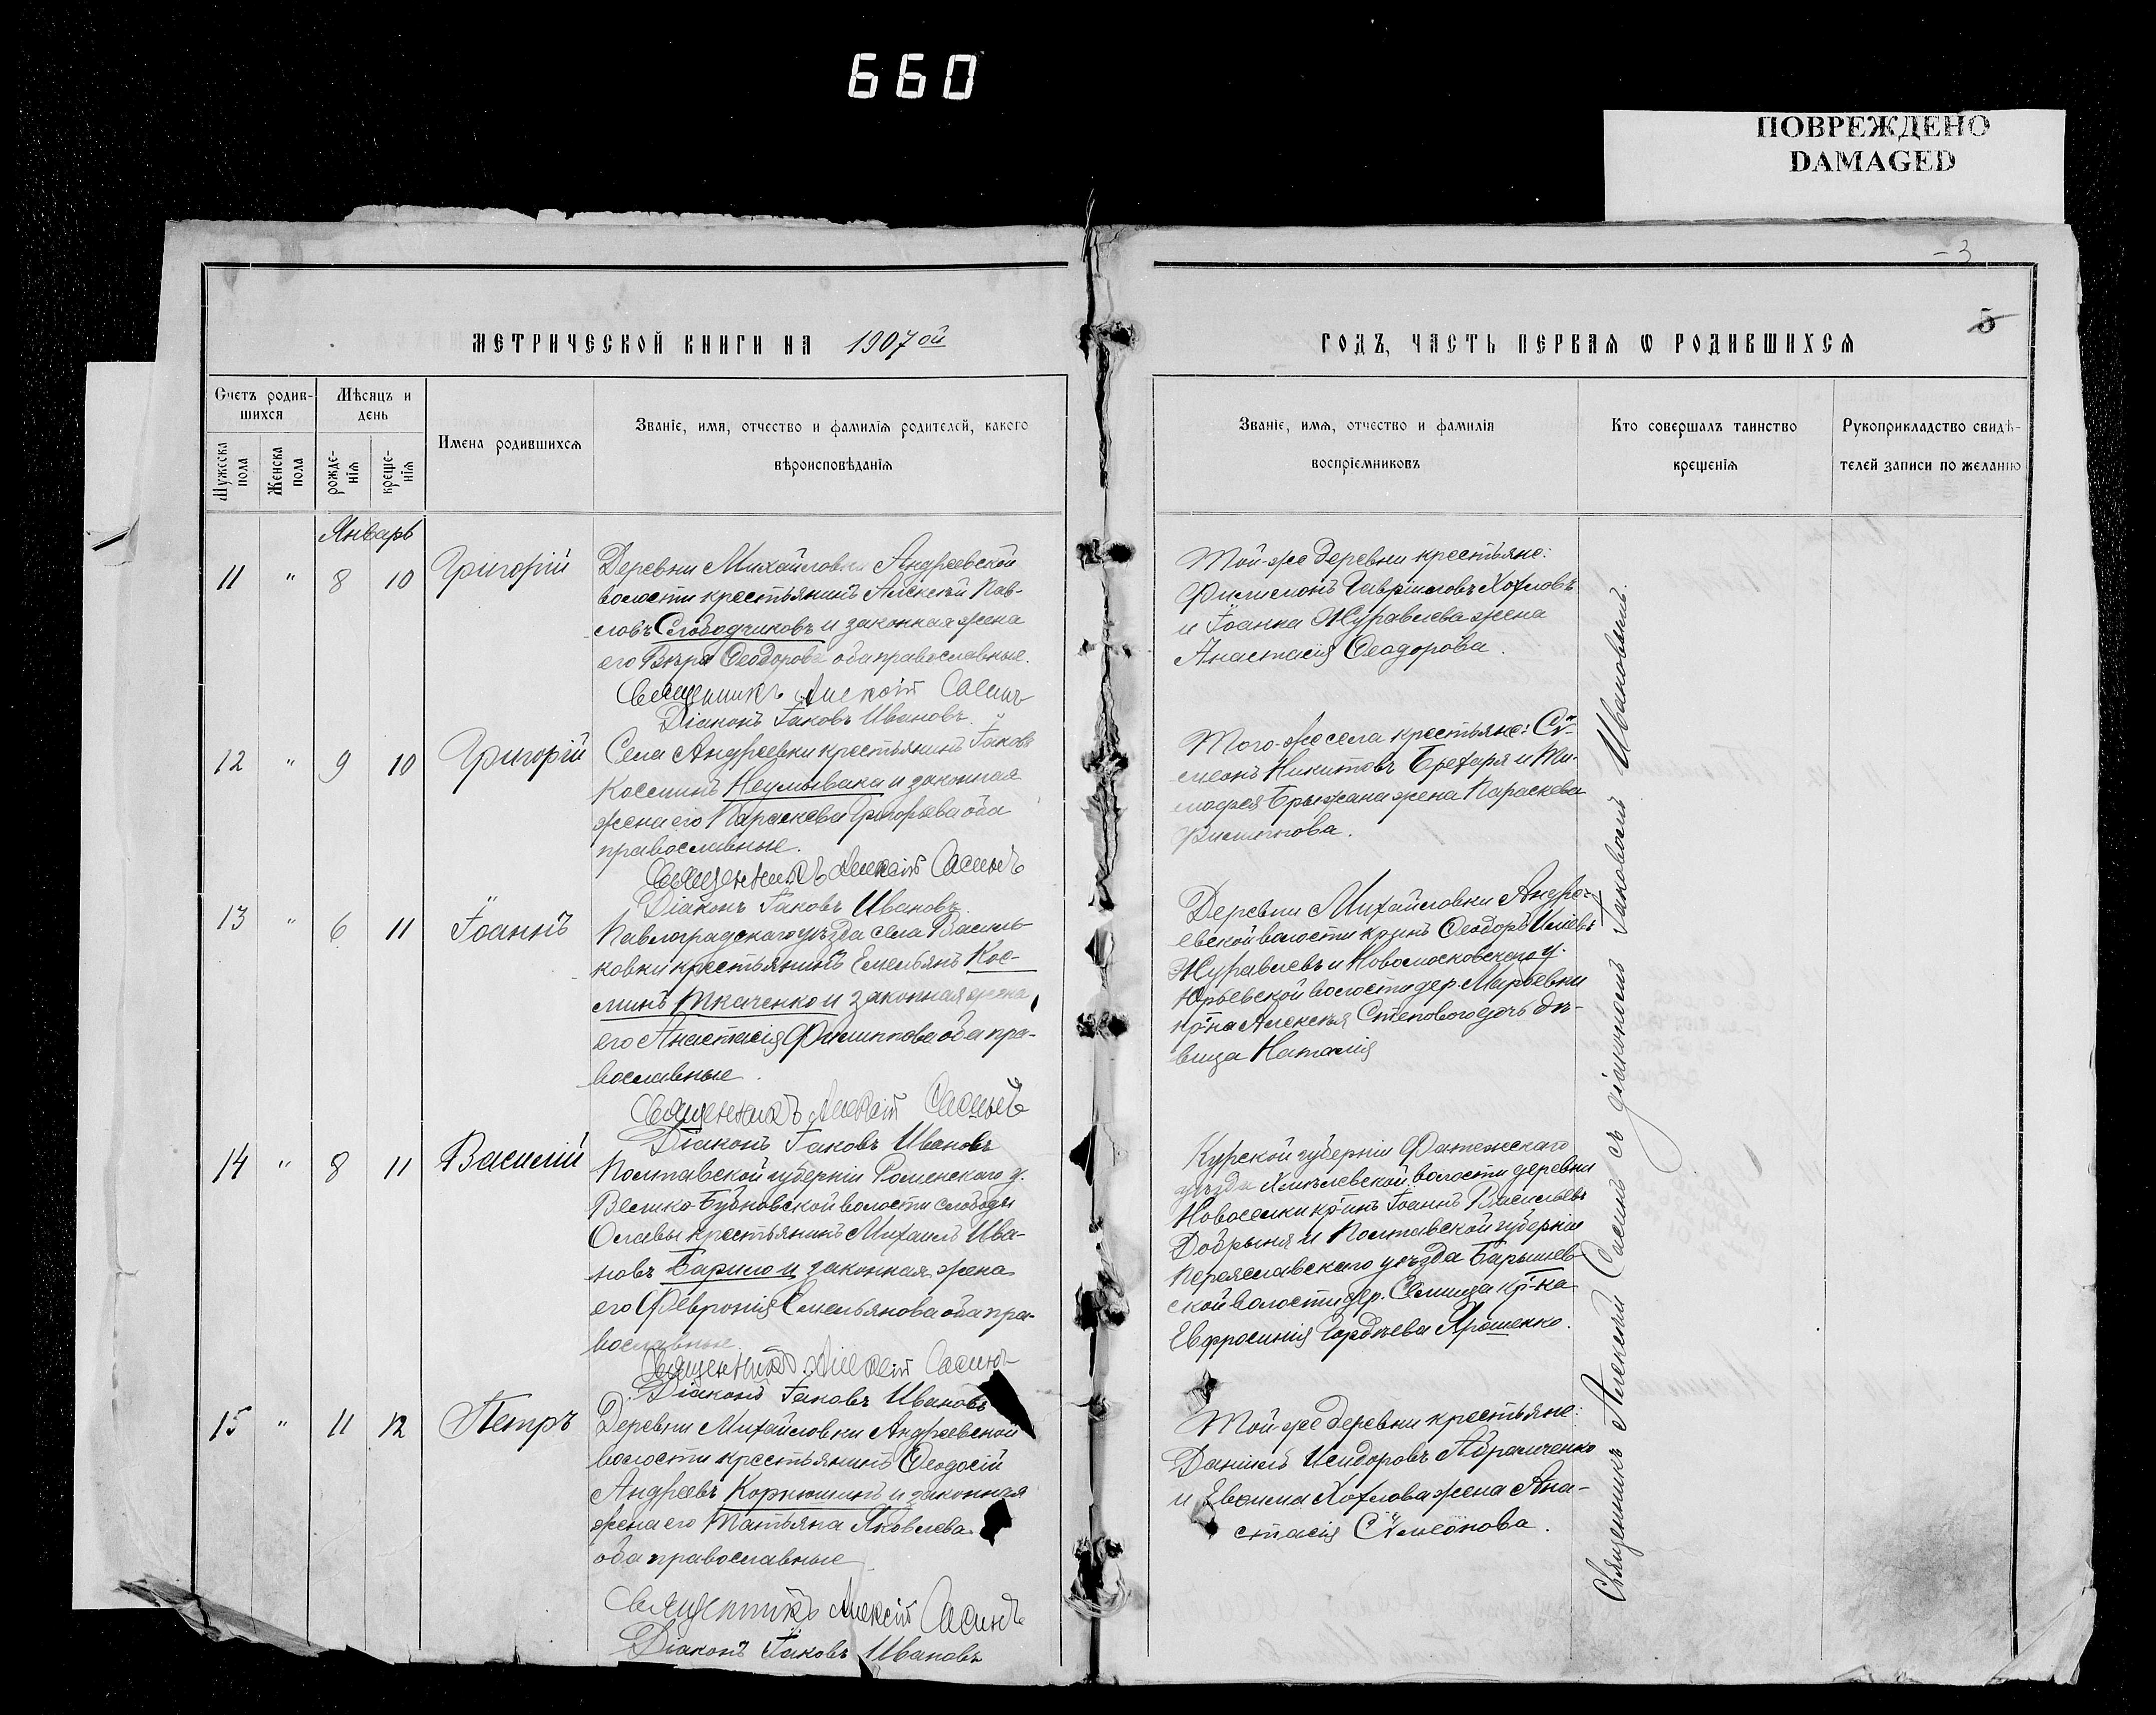 660
ПОВРЕЖДЕНО
DAMAGED
3
5
МЕТРИЧЕСКОЙ КНИГИ НА 1907ой
ГОДЪ, ЧАСТЬ ПЕРВАЯ Ѡ РОДИВШИХСЯ
Счетъ родив-
шихся
Мѣсяцъ и
день
Имена родившихся
Званіе, имя, отчество и фамилія родителей, какого
вѣроисповѣданія
Мужеска
пола
Женска
пола
рожде-
нія
креще-
нія
Званіе, имя, отчество и фамилія
воспріемниковъ
Кто совершалъ таинство
крещенія
Рукоприкладство свидѣ-
телей записи по желанію
Январь
11 " 8 10 Григорій
Деревни Михайловки Андреевской
волости крестьянинъ Алексѣй Пав-
ловъ Слободчиковъ и законная жена
его Вѣра Ѳеодорова оба православные.
Священникъ Алексій Сасинъ
Діаконъ Іаковъ Ивановъ
Той-же деревни крестьяне:
Филимонъ Гавріиловъ Хохловъ
и Іоанна Журавлева жена
Анастасія Ѳеодорова.
12 " 9 10 Григорій
Села Андреевки крестьянинъ Іаковъ
Косминъ Неумывака и законная
жена его Параскева Григорьева оба
православные.
Священникъ Алексій Сасинъ
Діаконъ Іаковъ Ивановъ
Того-же села крестьяне: Сѵ-
меонъ Никитовъ Брехаря и Ти-
мофея Брыжана жена Параскева
Филиппова.
13 " 6 11 Іоаннъ
Павлоградскаго уѣзда села Василь-
ковки крестьянинъ Емельянъ Кос-
минъ Ткаченко и законная жена
его Анастасія Филиппова оба пра-
вославные.
Священникъ Алексій Сасинъ
Діаконъ Іаковъ Ивановъ
Деревни Михайловки Андре-
евской волости кр-инъ Ѳеодоръ Иліевъ
Журавлевъ и Новомосковскаго у.
Юрьевской волости дер. Марьевки
кр-на Алексѣя Степового дочь дѣ-
вица Наталія
14 " 8 11 Василій
Полтавской губерніи Роменскаго у.
Велико-Бубновской волости слободы
Ославы крестьянинъ Михаилъ Ива-
новъ Барило и законная жена
его Февронія Емельянова оба пра-
вославные
Священникъ Алексій Сасинъ
Діаконъ Іаковъ Ивановъ
Курской губерніи Фатежскаго
уѣзда Хмѣлевской волости деревни
Новоселки кр-инъ Іоаннъ Васильевъ
Добрыня и Полтавской губерніи
Переяславскаго уѣзда Барышев-
ской волости дер. Селища кр-ка
Евфросинія Гордѣева Ярошенко.
15 " 11 12 Петръ
Деревни Михайловки Андреевской
волости крестьянинъ Ѳеодосій
Андреевъ Корнюшинъ и законная
жена его Татьяна Яковлева
оба православные
Священникъ Алексій Сасинъ
Діаконъ Іаковъ Ивановъ
Той же деревни крестьяне:
Даніилъ Исидоровъ Абрамченко
и Евѳима Хохлова жена Ана-
стасія Сѵмеонова.
Священникъ Алексѣй Сасинъ съ діакономъ Іаковомъ Ивановымъ.